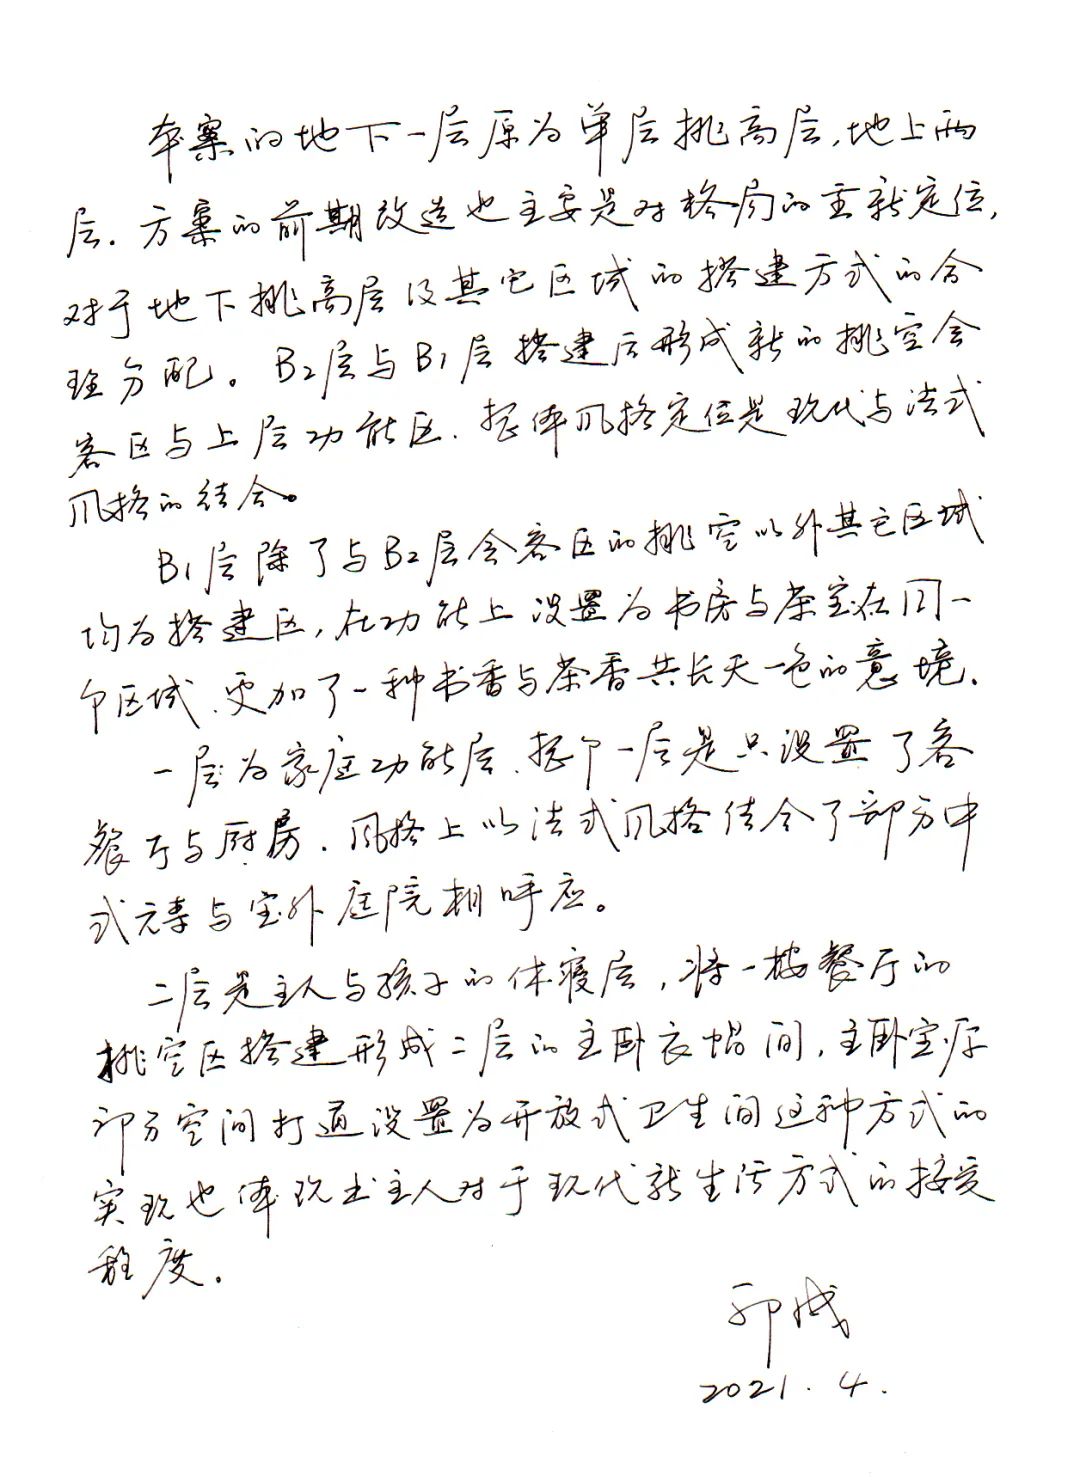 本案的地下一层原为单层挑高层,地上两
层.方案的前期改造也主要是对格局的重新定位,
对于地下挑高层及其它区域的搭建方式的合
理分配。B2层与B1层搭建后形成新的挑空会
客区与上层功能区.整体风格定位是现代与法式
风格的结合。
B1层除了与B2层会客区的挑空以外其它区域
均为搭建区,在功能上设置为书房与茶室在同一
个区域、更加了一种书香与茶香共长天一色的意境.
一层为家庭功能层、整个一层是只设置了客
餐厅与厨房.风格上以法式风格结合了部分中
式元素与室外庭院相呼应。
二层是主人与孩子的休寝层,将一楼餐厅的
挑空区搭建形成二层的主卧衣帽间,主卧室原
部分空间打通设置为开放式卫生间这种方式的
实现也体现出主人对于现代新生活方式的接受
程度.
2021.4.